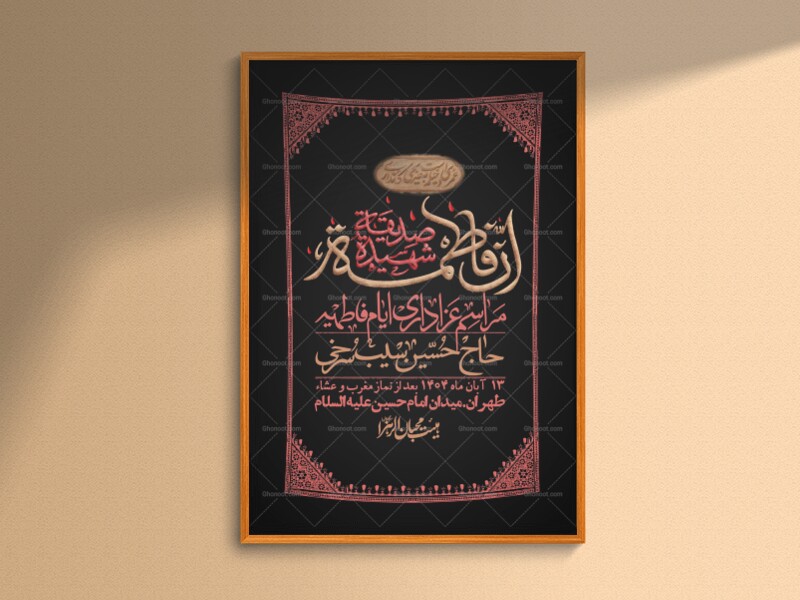 ان فاطمة
صدیقة شهیدة
مراسم عزاداری ایام فاطمیه
حاج حسین سیب سرخی
۱۳ آبان ماه ۱۴۰۴ بعد از نماز مغرب و عشاء
طهران.میدان امام حسین علیه السلام
هیئت محبان الزهرا
Ghonoot.com